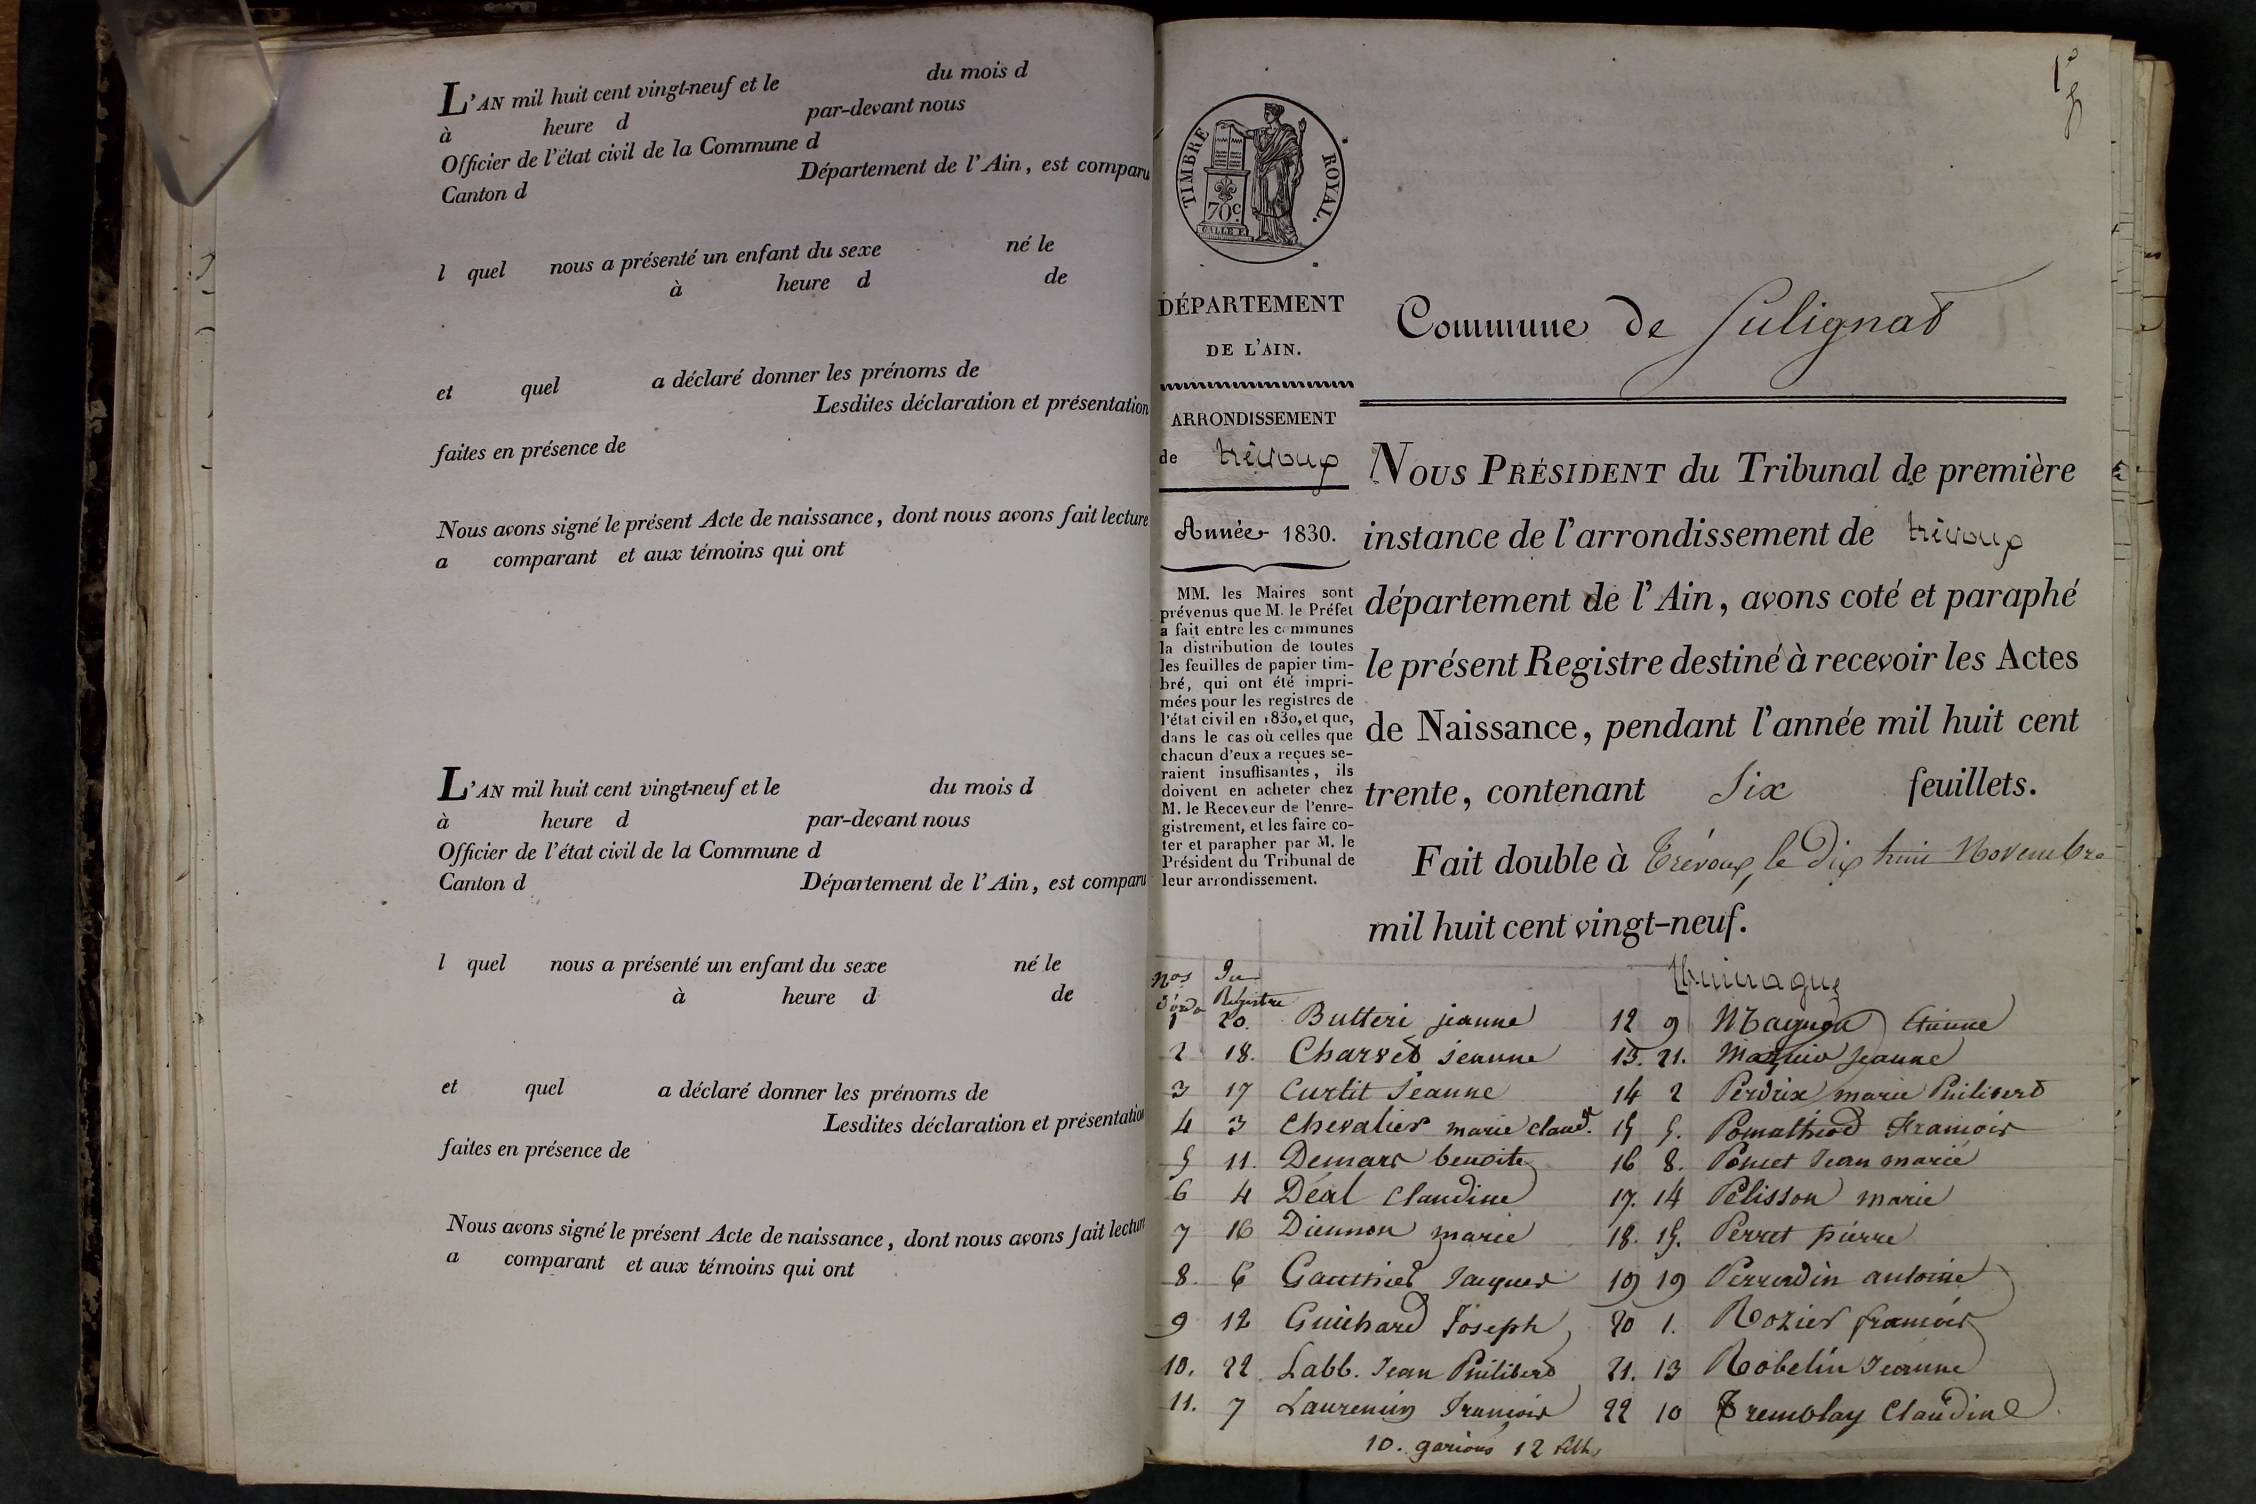 L'AN mil huit cent vingt-neuf et le du mois d
à heure d par-devant nous
Officier de l'état civil de la Commune d
Canton d Département de l'Ain, est comparu
l quel nous a présenté un enfant du sexe né le
à heure d de
et quel a déclaré donner les prénoms de
Lesdites déclaration et présentation
faites en présence de
Nous avons signé le présent Acte de naissance, dont nous avons fait lecture
a comparant et aux témoins qui ont
L'AN mil huit cent vingt-neuf et le du mois d
à heure d par-devant nous
Officier de l'état civil de la Commune d
Canton d Département de l'Ain, est comparu
l quel nous a présenté un enfant du sexe né le
à heure d de
et quel a déclaré donner les prénoms de
Lesdites déclaration et présentation
faites en présence de
Nous avons signé le présent Acte de naissance, dont nous avons fait lecture
a comparant et aux témoins qui ont
TIMBRE ROYAL.
70c.
DÉPARTEMENT
DE L'AIN.
ARRONDISSEMENT
de trévoux
Année 1830.
MM. les Maires sont
prévenus que M. le Préfet
a fait entre les communes
la distribution de toutes
les feuilles de papier tim-
bré, qui ont été impri-
mées pour les registres de
l'état civil en 1830, et que,
dans le cas où celles que
chacun d'eux a reçues se-
raient insuffisantes, ils
doivent en acheter chez
M. le Receveur de l'enre-
gistrement, et les faire co-
ter et parapher par M. le
Président du Tribunal de
leur arrondissement.
Commune de Sulignat
NOUS PRÉSIDENT du Tribunal de première
instance de l'arrondissement de trévoux
département de l'Ain, avons coté et paraphé
le présent Registre destiné à recevoir les Actes
de Naissance, pendant l'année mil huit cent
trente, contenant Six feuillets.
Fait double à Trévoux, le dix huit Novembre
mil huit cent vingt-neuf.
Nos d'ordre du Registre
1 20. Butteri jeanne
2 18. Charvet jeanne
3 17 Curtit Jeanne
4 3 Chevalier marie claud.
5 11. Demars benoite
6 4 Déal Claudine
7 16 Diennon marie
8. 6 Gauthier Jacques
9 12 Guichard Joseph
10. 22 Labb. Jean Philibert
11. 7 Laurencin François
12 9 Magnon Etienne
13. 21. Jeanne
14 2 Perdrix marie Philibert
15 5. Pomathiod François
16 8. Poncet Jean marie
17. 14 Pelisson marie
18. 15. Perret pierre
19 19 antoine
20 1. Rozier françois
21. 13 Robelin Jeanne
22 10 Tremblay Claudine
10. garçons 12 filles